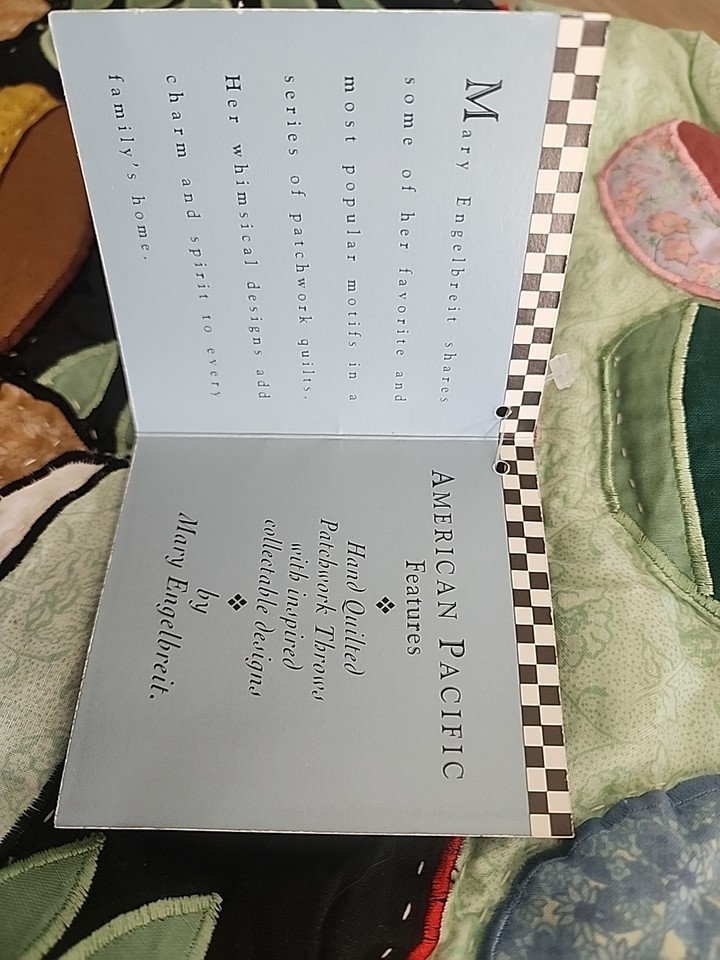 Mary Engelbreit shares
some of her favorite and
most popular motifs in a
series of patchwork quilts.
Her whimsical designs add
charm and spirit to every
family's home.
AMERICAN PACIFIC
Features
Hand Quilted
Patchwork Throws
with inspired
collectable designs
by
Mary Engelbreit.